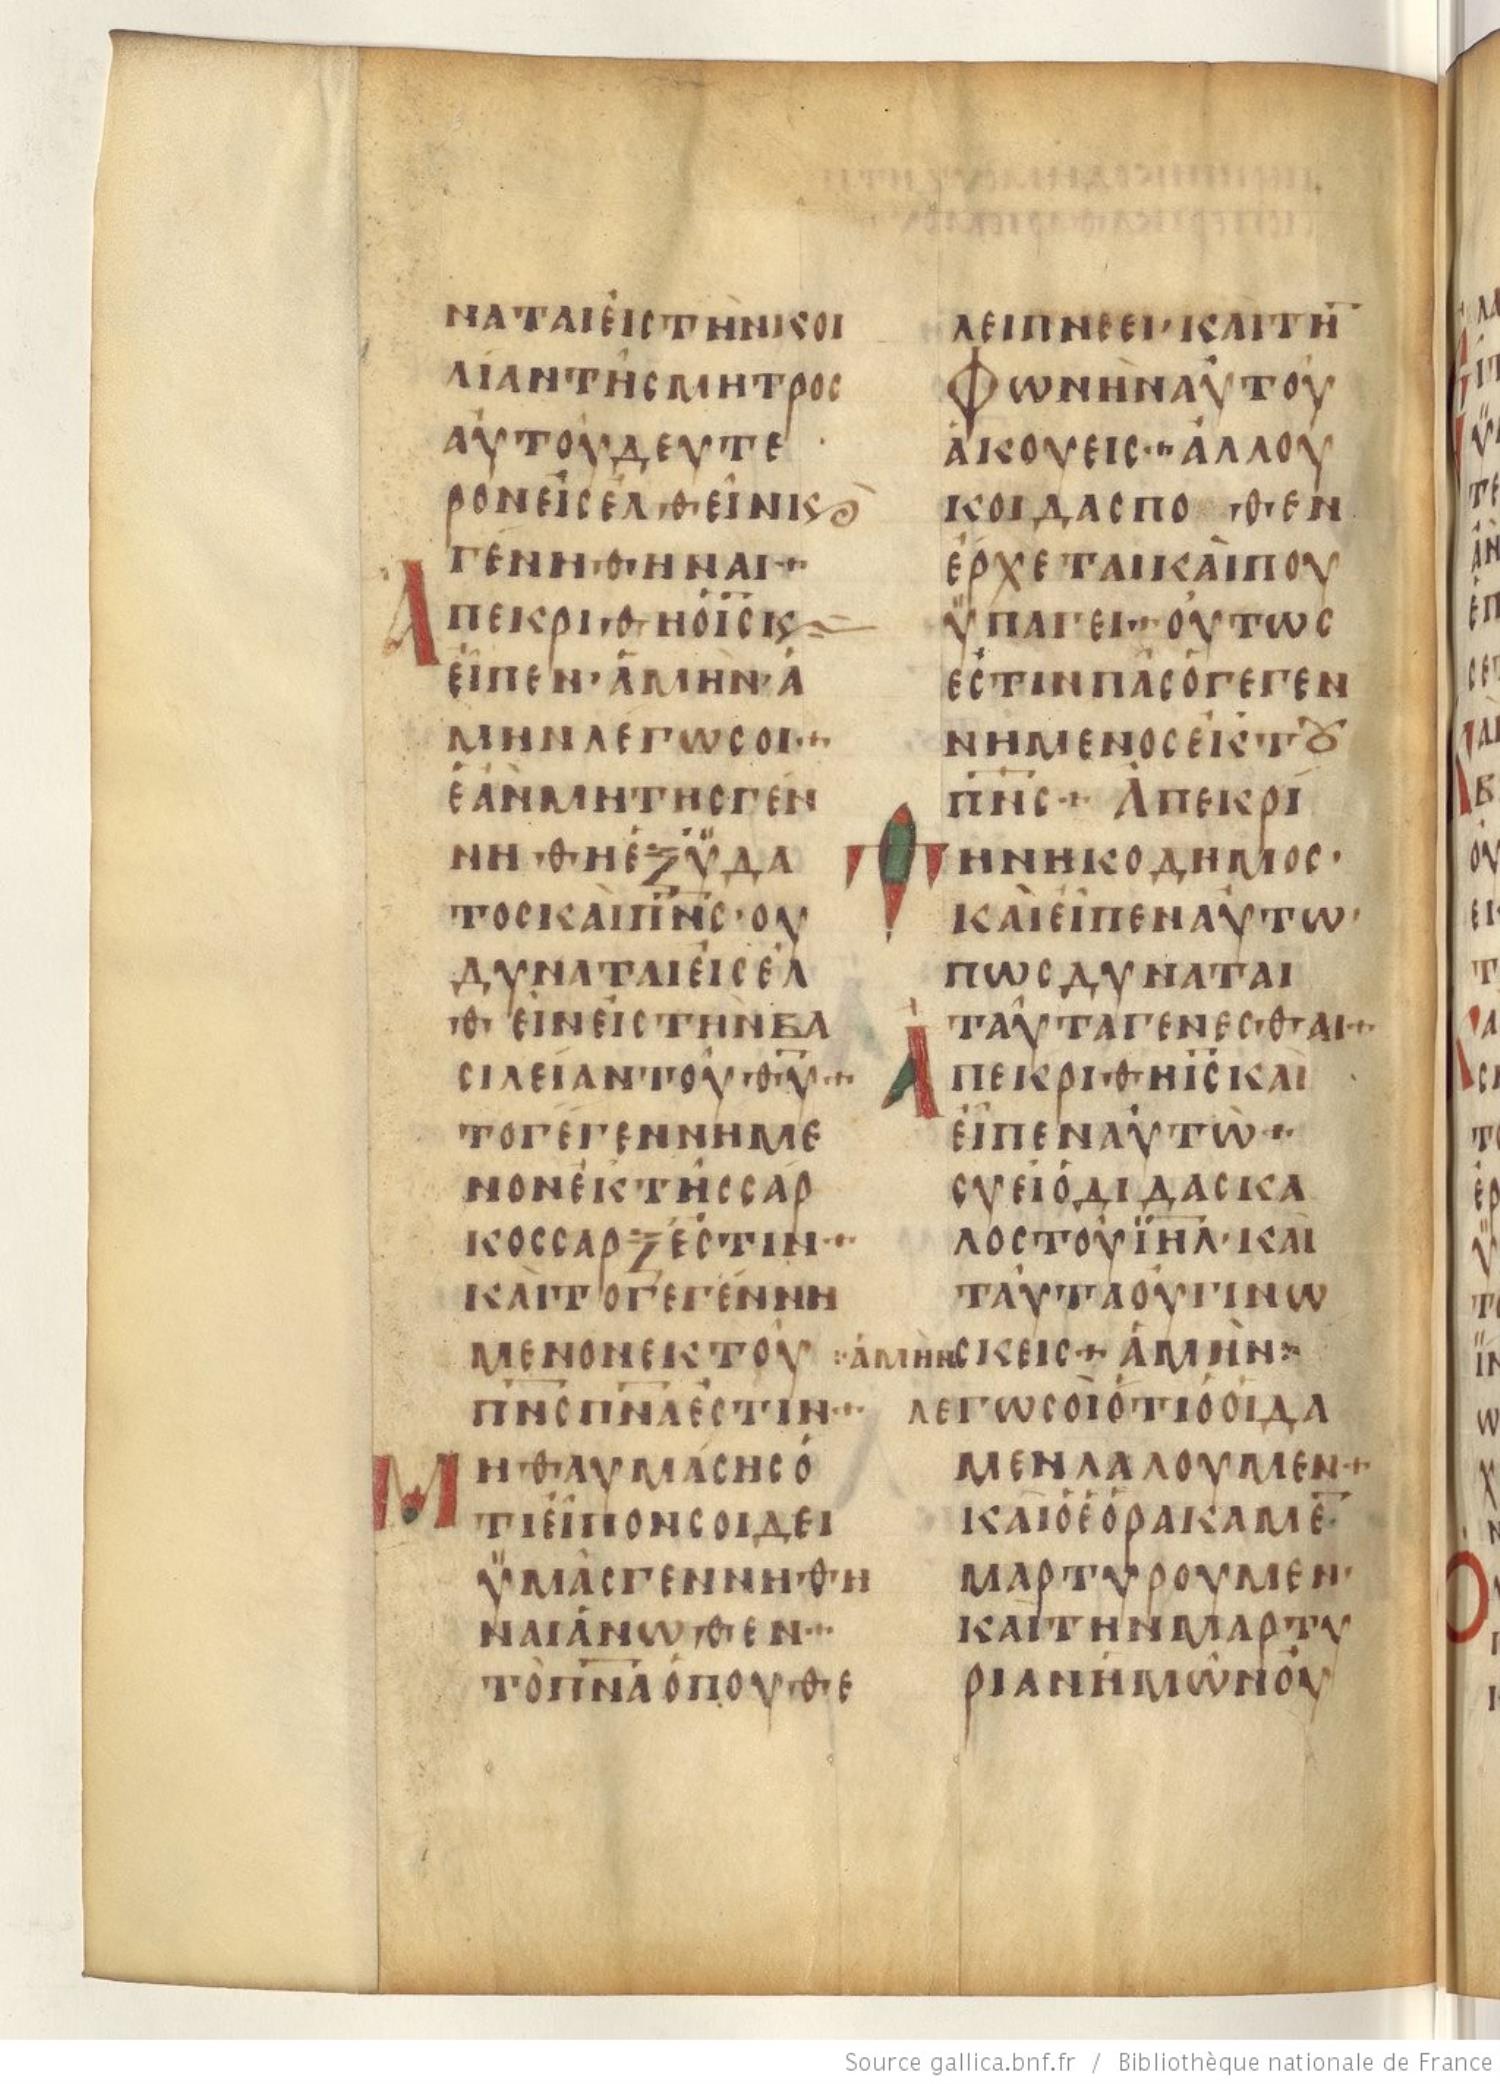 ΝΑΤΑΙΕΙΣΤΗΝΚΟΙ
ΛΙΑΝΤΗΣΜΗΤΡΟΣ
ΑΥΤΟΥΔΕΥΤΕ
ΡΟΝΕΙΣΕΛΘΕΙΝΚϚ
ΓΕΝΗΘΗΝΑΙ
ΑΠΕΚΡΙΘΗΟΙ̅Σ̅Κ
ΕΙΠΕΝ·ΑΜΗΝ·Α
ΜΗΝΛΕΓΩΣΟΙ
ΕΑΝΜΗΤΗΣΓΕΝ
ΝΗΘΗΕΞΫΔΑ
ΤΟΣΚΑΙΠ̅Ν̅Σ̅·ΟΥ
ΔΥΝΑΤΑΙΕΙΣΕΛ
ΘΕΙΝΕΙΣΤΗΝΒΑ
ΣΙΛΕΙΑΝΤΟΥΘ̅Υ̅
ΤΟΓΕΓΕΝΝΗΜΕ
ΝΟΝΕΚΤΗΣΣΑΡ
ΚΟΣΣΑΡΞΕΣΤΙΝ
ΚΑΙΤΟΓΕΓΕΝΝΗ
ΜΕΝΟΝΕΚΤΟΥ
Π̅Ν̅Σ̅Π̅Ν̅Α̅ΕΣΤΙΝ
ΜΗΘΑΥΜΑΣΗΣΟ
ΤΙΕΙΠΟΝΣΟΙΔΕΙ
ΫΜΑΣΓΕΝΝΗΘΗ
ΝΑΙΑΝΩΘΕΝ
ΤΟΠ̅Ν̅Α̅ΟΠΟΥΘΕ
ΛΕΙΠΝΕΕΙ·ΚΑΙΤΗ̅
ΦΩΝΗΝΑΥΤΟΥ
ΑΚΟΥΕΙΣ·ΑΛΛΟΥ
ΚΟΙΔΑΣΠΟΘΕΝ
ΕΡΧΕΤΑΙΚΑΙΠΟΥ
ΫΠΑΓΕΙ·ΟΥΤΩΣ
ΕΣΤΙΝΠΑΣΟΓΕΓΕΝ
ΝΗΜΕΝΟΣΕΚΤȢ
Π̅Ν̅Σ̅ ΑΠΕΚΡΙ
ΘΗΝΗΚΟΔΗΜΟΣ·
ΚΑΙΕΙΠΕΝΑΥΤΩ·
ΠΩΣΔΥΝΑΤΑΙ
ΤΑΥΤΑΓΕΝΕΣΘΑΙ
ΑΠΕΚΡΙΘΗΙ̅Σ̅ΚΑΙ
ΕΙΠΕΝΑΥΤΩ
ΣΥΕΙΟΔΙΔΑΣΚΑ
ΛΟΣΤΟΥΙ̅Η̅Λ̅·ΚΑΙ
ΤΑΥΤΑΟΥΓΙΝΩ
ΣΚΕΙΣ ΑΜΗΝ ΑΜΗΝ
ΛΕΓΩΣΟΙΟΤΙΟΟΙΔΑ
ΜΕΝΛΑΛΟΥΜΕΝ
ΚΑΙΟΕΟΡΑΚΑΜΕ̅
ΜΑΡΤΥΡΟΥΜΕΝ·
ΚΑΙΤΗΝΜΑΡΤΥ
ΡΙΑΝΗΜΩΝΟΥ
Source gallica.bnf.fr / Bibliothèque nationale de France